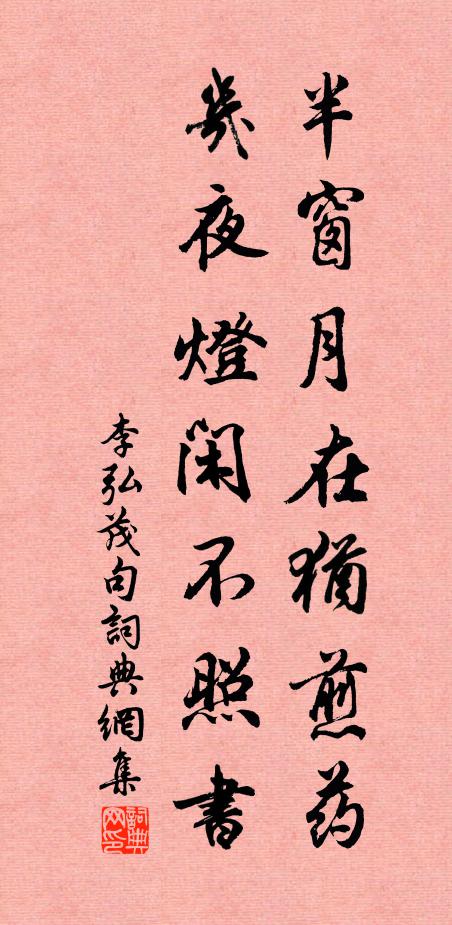 半窗月在猶煎药
幾夜燈閑不照書
李弘茂句詞典網集
詞典网印